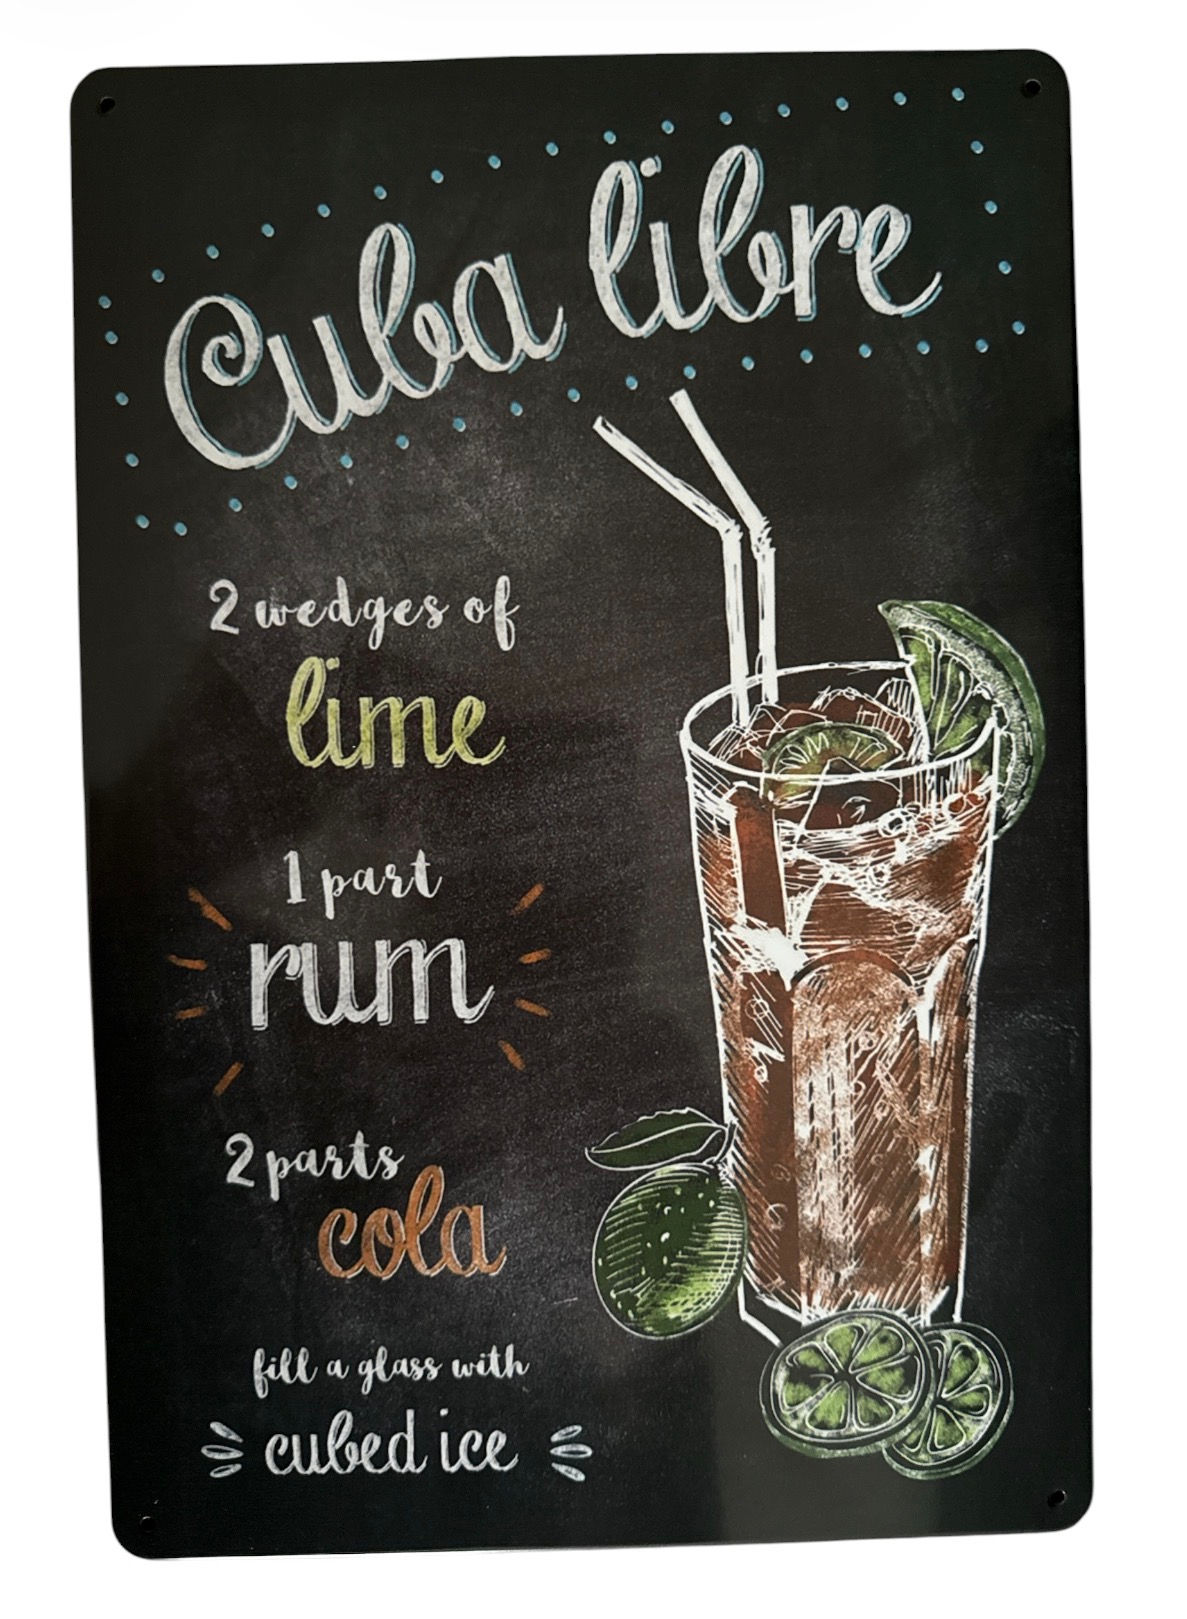 Cuba libre
2 wedges of
lime
1 part
rum
2 parts
cola
fill a glass with
cubed ice